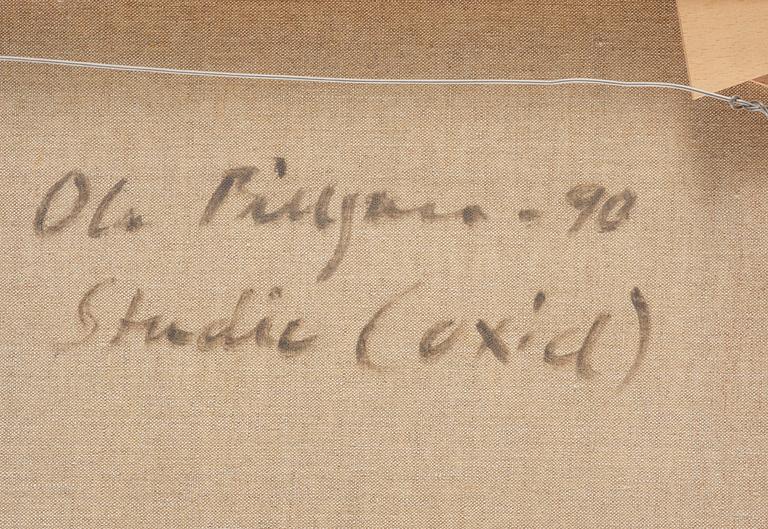 Ola Billgren - 90
Studie (oxid)